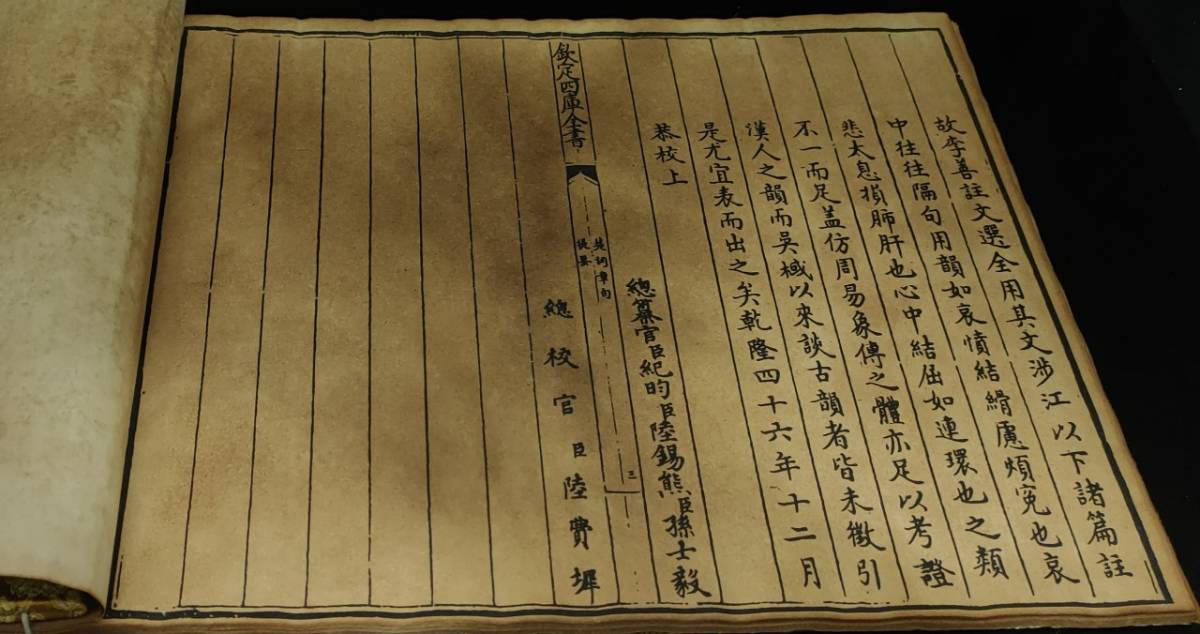 故李善註文選全用其文涉江以下諸篇註
中往往隔句用韻如哀憤結縎慮煩寃也哀
悲太息損肺肝也心中結屈如連環也之類
不一而足盖仿周易象傳之體亦足以考證
漢人之韻而吳棫以來談古韻者皆未徵引
是尤宜表而出之矣乾隆四十六年十二月
恭校上
總纂官臣紀昀臣陸錫熊臣孫士毅
欽定四庫全書
楚詞章句
提要
三
總校官臣陸費墀